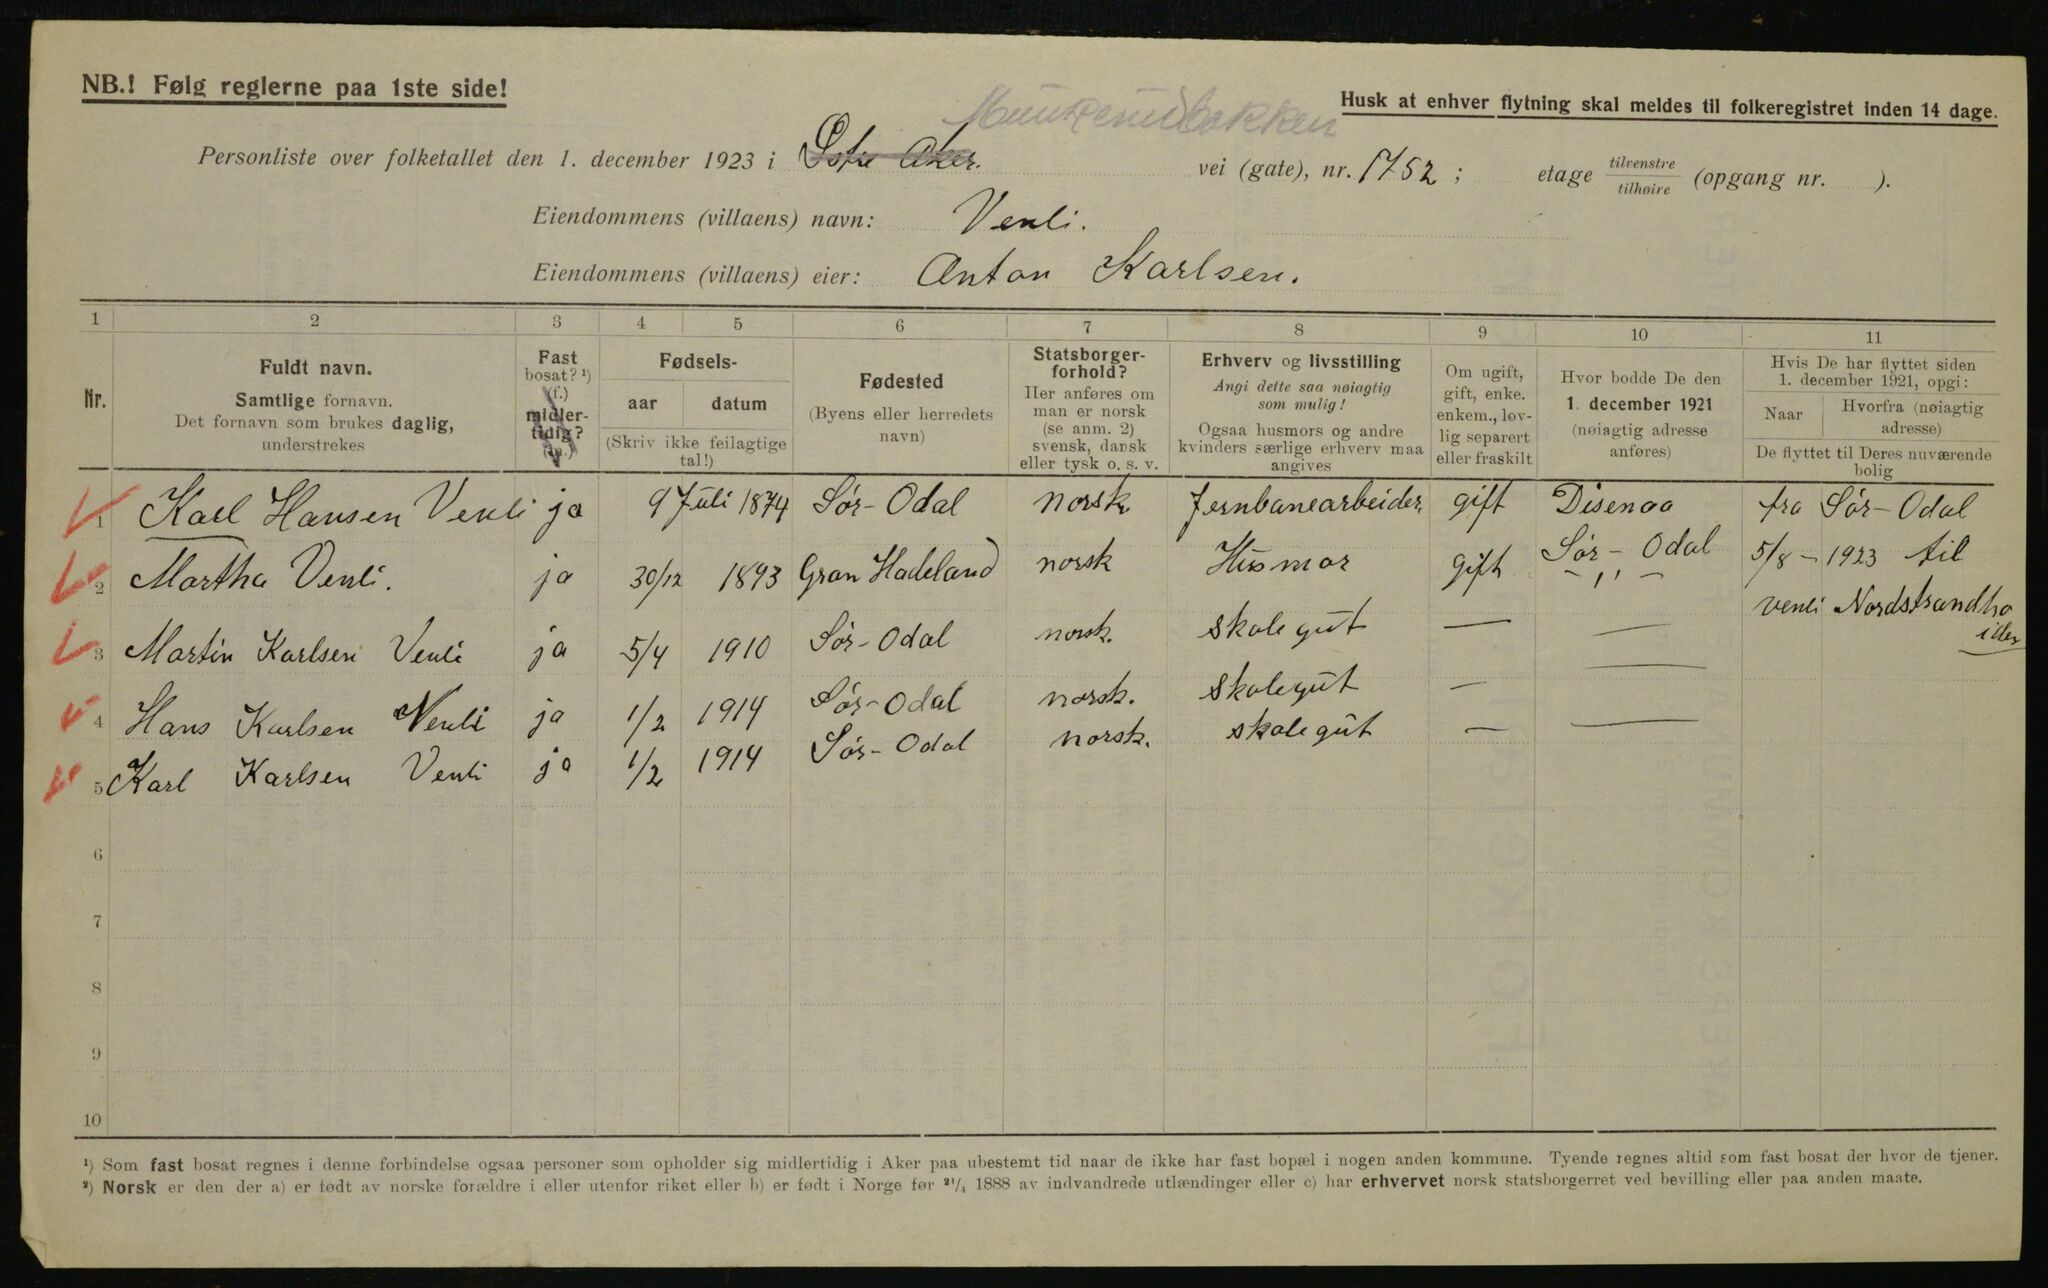 NB.! Følg reglerne paa 1ste side!
Husk at enhver flytning skal meldes til folkeregistret inden 14 dage.
Personliste over folketallet den 1. december 1923 i Østre Aker. vei (gate), nr. 1752; etage tilvenstre tilhøire (opgang nr. ).
Eiendommens (villaens) navn: Venli.
Eiendommens (villaens) eier: Anton Karlsen.
1 2 3 4 5 6 7 8 9 10 11
Nr.
Fuldt navn.
Samtlige fornavn.
Det fornavn som brukes daglig,
understrekes
Fast
bosat? ¹)
(f.)
midler-
tidig?
(m.)
Fødsels-
aar datum
(Skriv ikke feilagtige
tal!)
Fødested
(Byens eller herredets
navn)
Statsborger-
forhold?
Her anføres om
man er norsk
(se anm. 2)
svensk, dansk
eller tysk o. s. v.
Erhverv og livsstilling
Angi dette saa nøiagtig
som mulig!
Ogsaa husmors og andre
kvinders særlige erhverv maa
angives
Om ugift,
gift, enke.
enkem., løv-
lig separert
eller fraskilt
Hvor bodde De den
1. december 1921
(nøiagtig adresse
anføres)
Hvis De har flyttet siden
1. december 1921, opgi:
Naar Hvorfra (nøiagtig
adresse)
De flyttet til Deres nuværende
bolig
1 Karl Hansen Venli ja 9 Juli 1874 Sør-Odal norsk. Jernbanearbeider, gift Disenaa fra Sør-Odal
Sør-Odal
2 Martha Venli. ja 30/12 1893 Gran Hadeland norsk Husmor gift -,,- 5/8-1923 til
venli Nordstrandhø
iden
3 Martin Karlsen Venli ja 5/4 1910 Sør-Odal norsk. skolegut — —
4 Hans Karlsen Venli ja 1/2 1914 Sør-Odal norsk. skolegut — —
5 Karl Karlsen Venli ja 1/2 1914 Sør-Odal norsk. skolegut — —
6
7
8
9
10
¹) Som fast bosat regnes i denne forbindelse ogsaa personer som opholder sig midlertidig i Aker paa ubestemt tid naar de ikke har fast bopæl i nogen anden kommune. Tyende regnes altid som fast bosat der hvor de tjener.
²) Norsk er den der a) er født av norske forældre i eller utenfor riket eller b) er født i Norge før ²¹/₄ 1888 av indvandrede utlændinger eller c) har erhvervet norsk statsborgerret ved bevilling eller paa anden maate.